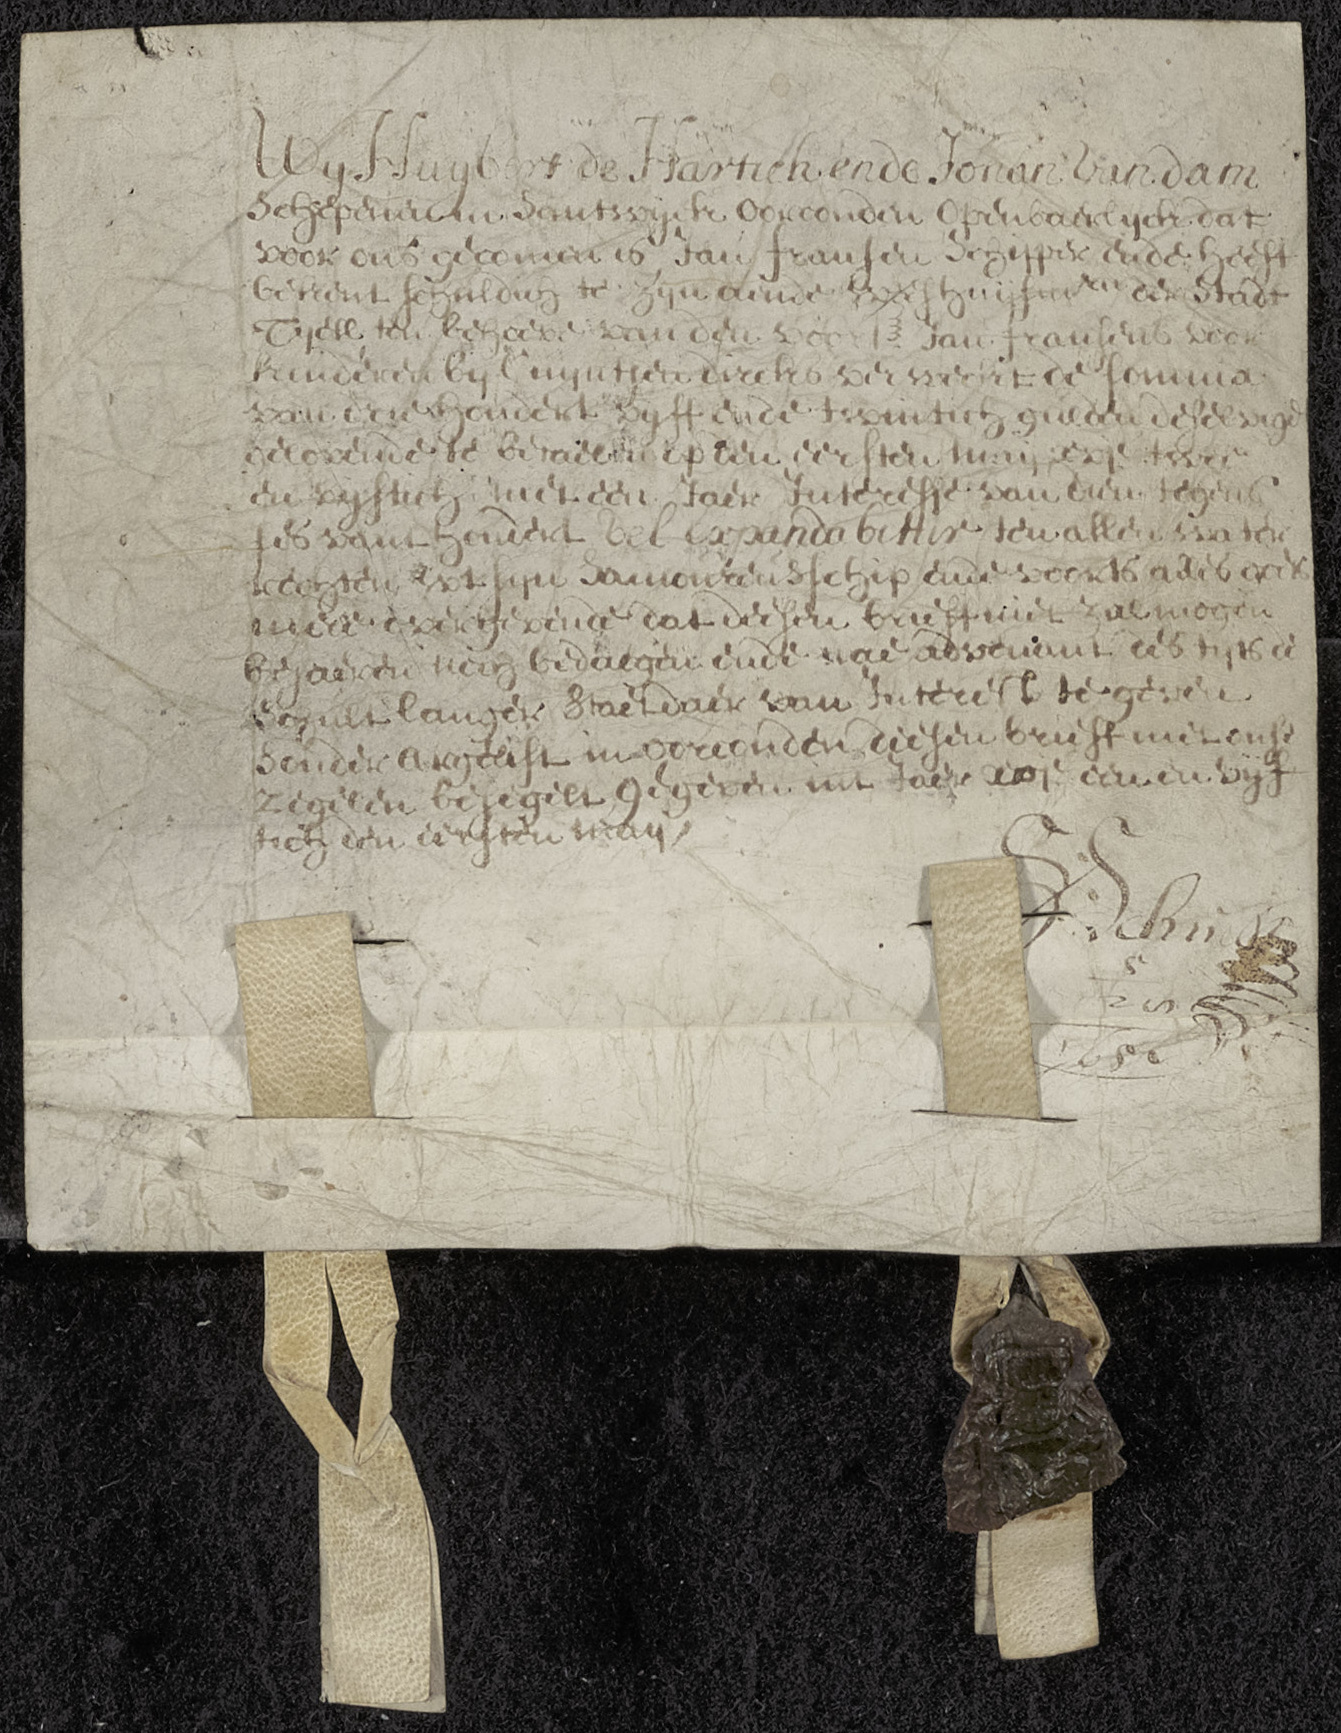 Wy Huybert de Hartich ende Johan van dam
Schepenen in Santwyck Oorconden Openbaerlyck dat
voor ons gecomen is Jan fransen Schipper ende heeft
bekent schuldich te zyn aende Weeshuysen der Stadt
Tyell ten behoeve van den voors Jan fransens voor
kinderen by dircks verweckt de somma
van drie hondert vyff ende twintich gulden deselvige
gelovende te betaelen op den eersten may xvjc twee
en vyftich met een Jaer Interesse van dien tegens
ses vant hondert vel expandabitur ten allen water
rechten wt syn Samoureus schip ende voorts alles
mede overgevende dat desen brieff niet zal mogen
bejaeren noch bedaegen ende nae advenant des tyts
schult langer Staet daer van Interest te geven
Sonder Argelist in oorconden desen brieff met onse
Zegelen besegelt Gegeven int Jaer xvjc een en vyff
tich den eersten may